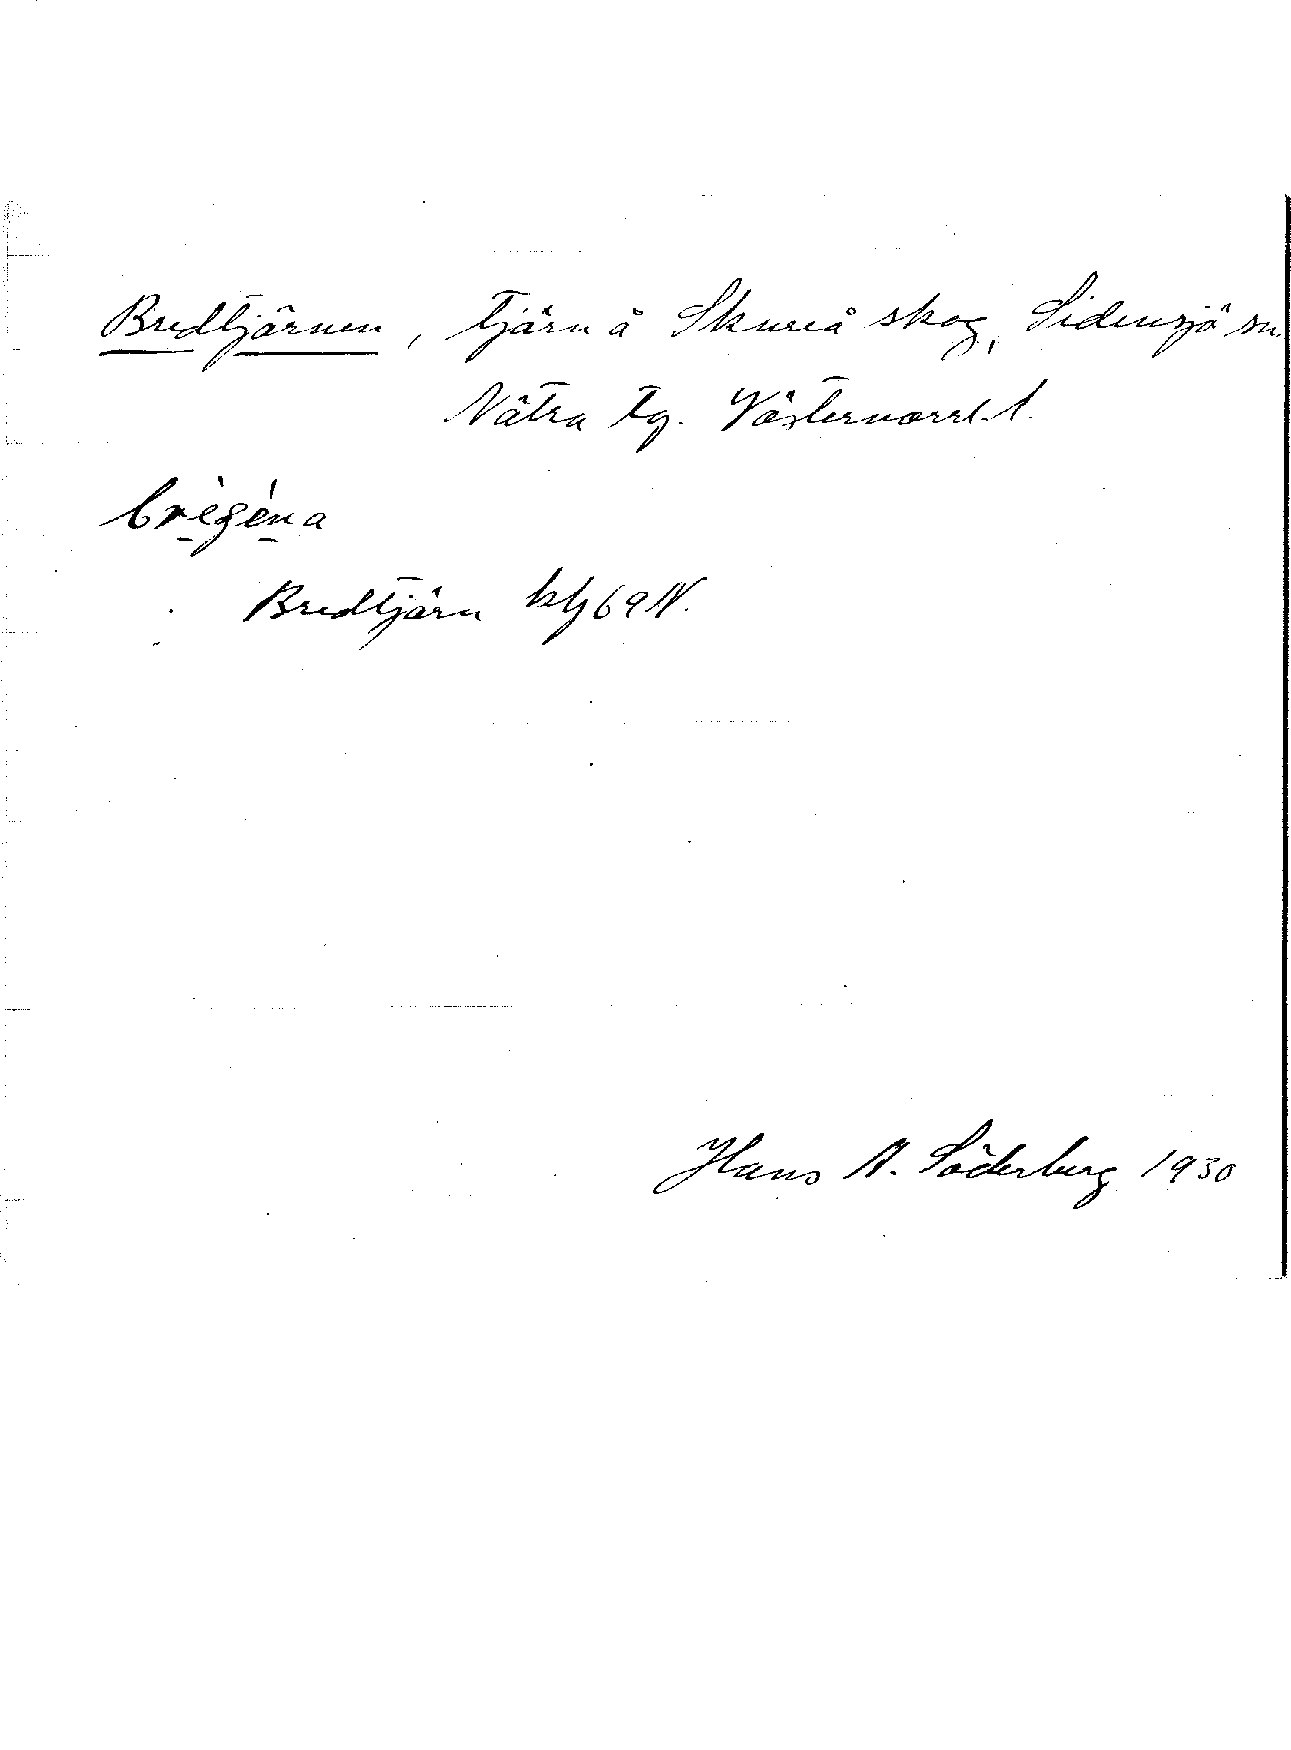 Bredtjärnen, tjärn å Skureå skog, Sidensjö sn.
Nätra tg. Västernorrl. l.
Bredtjärn kbl 69 N.
Hans A. Söderberg 1930